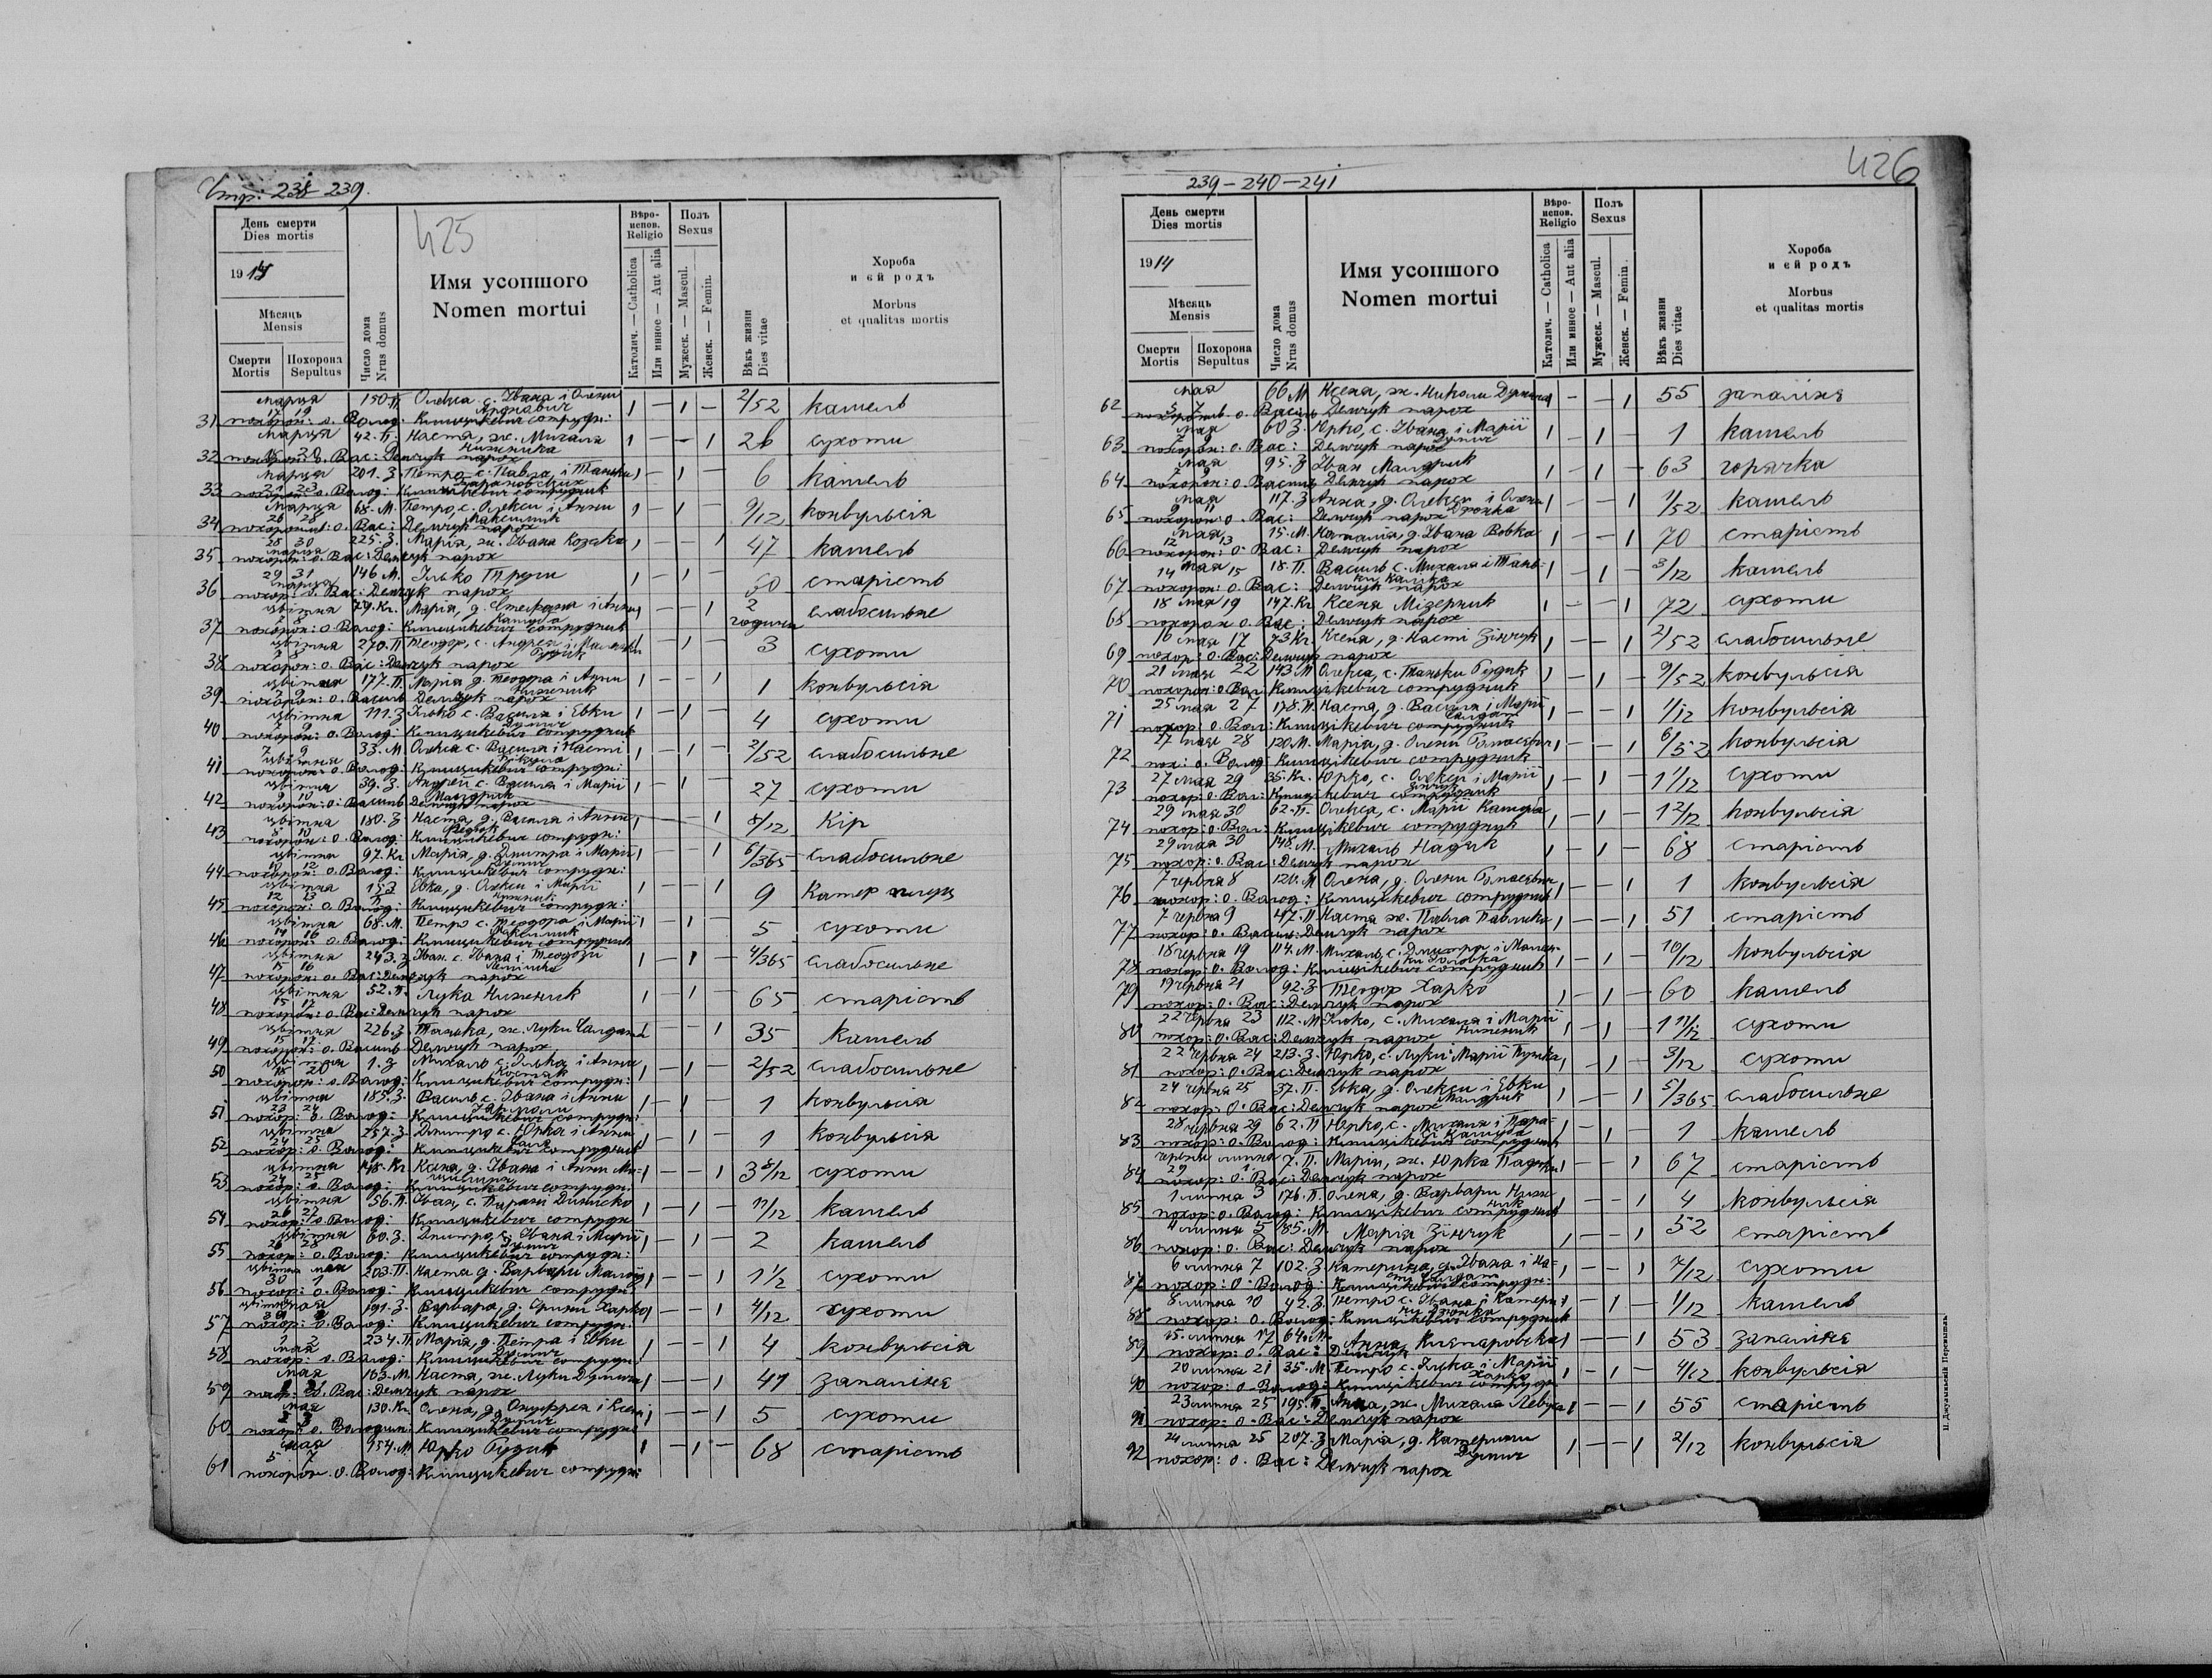 Стр: 238-239.
425
День смерти
Dies mortis
1914
Мѣсяць
Mensis
Смерти
Mortis
Похорона
Sepultus
Число дома
Nrus domus
Имя усопшого
Nomen mortui
Вѣро-
испов.
Religio
Католич. — Catholica
Или инное — Aut alia
Полъ
Sexus
Мужеск. — Mascul.
Женск. — Femin.
Вѣкъ жизни
Dies vitae
Хороба
и ей родъ
Morbus
et qualitas mortis
марця 150.П. Олекса с. Івана і Олени
31 17 19 1 — 1 — 2/52 кашель
похорон: о. Волод: Клищикевич сотрудн:
марця 42.П. Настя, ж. Михаля
32 Нижника 1 — — 1 26 сухоти
похорон: о. Вас: Демчук парох
марця 201.З. Петро с. Павла і Таньки
33 21 23 1 — 1 — 6 кашель
похорон: о. Волод: Клищикевич сотрудник
марця 68.М. Петро, с. Олекси і Анни
34 26 28 1 — 1 — 9/12 конвульсія
похорон: о. Вас: Демчук парох
28 30 марця 225.З. Марія, ж. Івана Козака
35 1 — 1 47 кашель
похорон: о. Вас: Демчук парох
29 31 марця 146 М. Ілько
36 1 — 1 — 60 старість
похор: о. Вас: Демчук парох
цвітня 79.Кл. Марія, д. Стефана і Анни
37 1 — — 1 2 години слабосильне
похорон: о. Волод: Клищикевич сотрудник
цвітня 270.П. Теодор, с. Андрея і
38 1 — 1 3 сухоти
похорон: о. Вас: Демчук парох
цвітня 177.П. Марія д. Теодора і Анни
39 Нижник 1 — 1 1 конвульсія
похорон: о. Василь Демчук парох
цвітня 111.З Ілько с. Василя і Евки
40 1 — 1 — 4 сухоти
похорон: о. Волод: Клищикевич сотрудник
7 9 цвітня 33.М Олекса с. Василя і Насті
41 1 — 1 — 2/52 слабосильне
похорон: о. Волод: Клищикевич сотрудн:
цвітня 39.З. Андрей с. Василя і Марії
42 9 10 1 — 1 27 сухоти
похорон: о. Василь Демчук парох
цвітня 180.З Настя, д. Василя і Анни
43 8 10 1 — 1 8/12 Кір
похорон: о. Волод: Клищикевич сотрудн:
цвітня 97.Кл. Марія, д. Дмитра і Марії
44 10 12 1 — 1 6/365 слабосильне
похорон: о. Волод: Клищикевич сотрудн:
цвітня Евка, д. Олекси і Марії
45 12 13 1 — 1 9
похорон: о. Волод: Клищикевич сотрудн:
цвітня 68.М. Петро с. Теодора і Марії
46 14 16 1 — 1 5 сухоти
похорон: о. Волод: Клищикевич сотрудник
цвітня 243.З Іван с. Івана і Теодози
47 15 16 1 — 1 — 4/365 слабосильне
похорон: о. Вас: Демчук парох
цвітня 52.П. Лука Нижник
48 15 17 1 — 1 — 65 старість
похорон: о. Вас: Демчук парох
цвітня 226.З. Танька, ж. Луки Чалдан
49 15 17 — — 1 35 кашель
похорон: о. Василь Демчук парох
цвітня 1.З Михаль с. Ілька і Анни
50 18 20 1 — 1 — 2/52 слабосильне
похорон: о. Волод: Клищикевич сотрудн:
цвітня 185.З. Василь с. Івана і Анни
51 23 24 1 — 1 — 1 конвульсія
похор: о. Волод: Клищикевич сотрудн:
цвітня 257.З. Дмитро с. Юрка і Анни
52 24 25 1 — 1 — 1 конвульсія
похор: о. Волод: Клищикевич сотрудник
цвітня 148.Кл Ксеня, д. Івана і Анни
53 24 25 1 — — 1 3 8/12 сухоти
похор: о. Волод: Клищикевич сотрудн:
цвітня 56.П. Іван, с. Парані Дениско
54 26 27 1 — 1 — 11/12 кашель
похор: о. Волод: Клищикевич сотрудн:
цвітня 60.З. Дмитро, с. Івана і Марії
55 26 28 1 — 1 — 2 кашель
похор: о. Волод: Клищикевич сотрудн:
цвітня мая 203.П. Настя д. Варвари
56 30 1 1 — — 1 1½ сухоти
похор: о. Волод: Клищикевич сотрудн:
цвітня мая 191.З. Варвара, д. Харко
57 1 — — 1 4/12 сухоти
похор: о. Волод: Клищикевич сотрудн:
мая 234.П Марія, д. Петра і Евки
58 1 — — 1 4 конвульсія
похор: о. Волод: Клищикевич сотрудн:
мая 163.М. Настя, ж. Луки
59 1 — — 1 47 запалінє
похор: о. Вас: Демчук парох
мая 130.Кл. Олена, д. Онуфрея і Ксені
60 — — 1 5 сухоти
похор: о. Володим: Клищикевич сотрудн:
мая 154.М Юрко Гудик
61 5 7 1 — 1 — 68 старість
похорон. о. Волод: Клищикевич сотрудн:
239 – 240 – 241
426
День смерти
Dies mortis
1914
Мѣсяць
Mensis
Смерти
Mortis
Похорона
Sepultus
Число дома
Nrus domus
Имя усопшого
Nomen mortui
Вѣро-
испов.
Religio
Католич. — Catholica
Или инное — Aut alia
Полъ
Sexus
Мужеск. — Mascul.
Женск. — Femin.
Вѣкъ жизни
Dies vitae
Хороба
и ей родъ
Morbus
et qualitas mortis
мая 66.М Ксеня, ж. Николи
62 5 7 — — 1 55 запалінє
похорон. о. Василь Демчук парох
мая 60 З. Юрко, с. Івана і Марії
63 7 9 1 — 1 — 1 кашель
похорон: о. Вас: Демчук парох
мая 95.З Іван Мандрик
64 7 9 1 — 1 — 63 горячка
похорон: о. Василь Демчук парох
мая 117.З Анна, д. Олекси і Олени
65 9 11 1 — — 1 1/52 кашель
похорон: о. Вас: Демчук парох
мая 15.М. Наталія, д. Івана Вовка
66 12 13 1 — — 1 70 старість
похорон: о. Вас: Демчук парох
14 мая 15 18.П. Василь с. Михаля і Тань-
67 ки 1 — 1 — 3/12 кашель
похорон: о. Вас: Демчук парох
18 мая 19 147.Кл Ксеня Мізерник
68 1 — — 1 72 сухоти
похорон о. Вас: Демчук парох
16 мая 17 73 Кл. Ксеня, д. Насті Зінчук
69 1 — 1 2/52 слабосильне
похор: о. Вас: Демчук парох
21 мая 22 143.М Олекса, с. Таньки Гудик
70 1 — 1 — 9/52 конвульсія
похорон: о. Вол: Клищікевич сотрудник
25 мая 27 178.П. Настя, д. Василя і Марії
71 Чалдан 1 — — 1 1/12 конвульсія
похор: о. Вол: Клищікевич сотрудник
27 мая 28 120.М. Марія, д. Олени
72 1 — — 1 6/52 конвульсія
пох: о. Волод: Клищікевич сотрудник
27 мая 29 35.Кл. Юрко, с. Олекси і Марії
73 1 — 1 — 1 1/12 сухоти
похор: о. Вол: Клищікевич сотрудник
29 мая 30 62.П. Олекса, с. Марії
74 1 — 1 — 1 2/12 конвульсія
похор: о. Вол: Клищікевич сотрудник
29 мая 30 148.М. Михаль Надик
75 1 — 1 — 68 старість
похор: о. Вас: Демчук парох
7 червня 8 120.М Олена, д. Олени
76 1 — — 1 1 конвульсія
похор: о. Волод: Клищікевич сотрудник
7 червня 9 147.П Настя ж. Павла Павлика
77 1 — — 1 51 старість
похор: о. Василь Демчук парох
18 червня 19 114.М. Михаль, с. Дмитра і
78 1 — 1 — 10/12 конвульсія
похор: о. Волод: Клищікевич сотрудник
19 червня 21 92.З Теодор Харко
79 1 — 1 — 60 кашель
похор: о. Вас: Демчук парох
22 червня 23 112.М Ілько, с. Михаля і Марії
80 Нижник 1 — 1 — 1 11/12 сухоти
похор: о. Вас: Демчук парох
22 червня 24 213.З. Юрко, с. Луки і Марії
81 1 — 1 — 3/12 сухоти
похор: о. Вас: Демчук парох
24 червня 25 37.П. Евка, д. Олекси і Евки
82 Мандрик 1 — — 1 5/365 слабосильне
похор: о. Вас: Демчук парох
28 червня 29 62.П Юрко, с. Михаля і Пара-
83 1 — 1 — 1 кашель
похор: о. Волод: Клищікевич сотрудник
червня липня 7.П. Марія, ж. Юрка
84 29 1 1 — — 1 67 старість
похор: о. Вас: Демчук парох
1 липня 3 176.П. Олена, д. Варвари Ниж-
85 ник 1 — — 1 4 конвульсія
похор: о. Волод: Клищікевич сотрудник
4 липня 5 85.М. Марія Зінчук
86 1 — — 1 52 старість
похор: о. Вас: Демчук парох
6 липня 7 102.З Катерина, д. Івана і На-
87 сті Чалдан 1 — — 1 7/12 сухоти
похор: о. Волод: Клищікевич сотрудн:
8 липня 10 42.З. Петро с. Івана і Катери-
88 ни 1 — 1 — 1/12 кашель
похор: о. Волод: Клищікевич сотрудник
15 липня 17 64.М. Анна
89 1 — — 1 53 запалінє
похор: о. Вас: Демчук
20 липня 21 35.М Петро с. Лука і Марії
90 Харко 1 — 1 — 4/12 конвульсія
похор: о. Волод: Клищікевич сотрудн:
23 липня 25 195.П. Анна, ж. Михаля
91 1 — — 1 55 старість
похор: о. Вас: Демчук парох
24 липня 25 207.З Марія, д. Катерини
92 1 — — 1 2/12 конвульсія
похор: о. Вас: Демчук парох